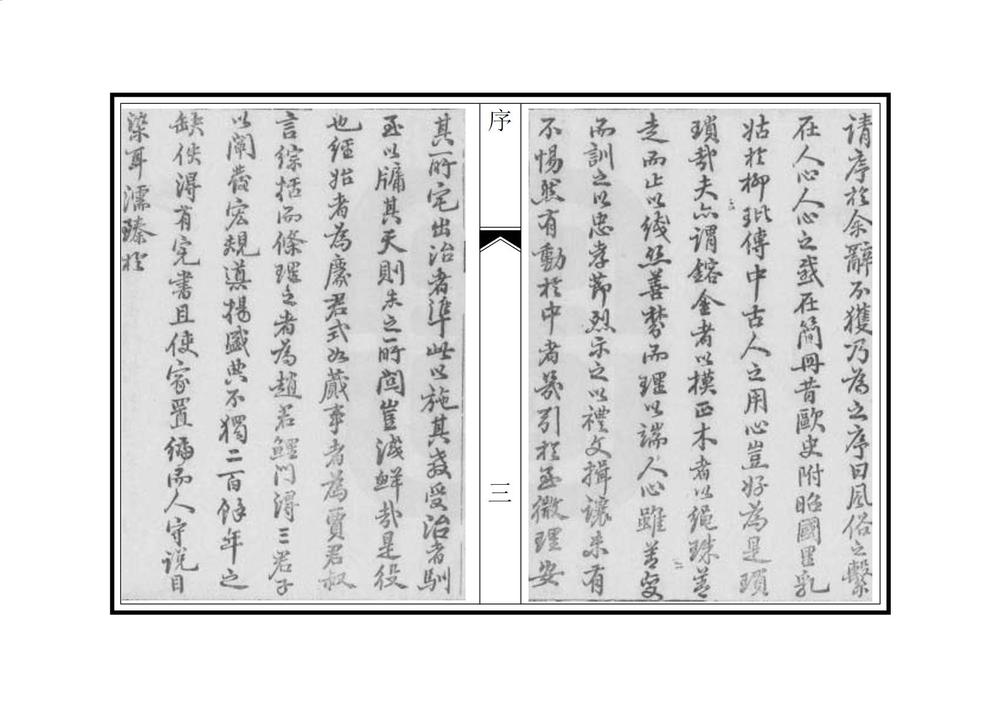 请序於余辭不獲乃為之序曰風俗之繫
在人心人心之感在簡冊昔歐史附昭國置乳
姑於柳玭傳中古人之用心豈好為是瑣
瑣哉夫亦謂鎔金者以模正木者以繩珠善
走而止以綫絲善棼而理以端人心雖善變
而訓之以忠孝節烈示之以禮文揖讓未有
不惕然有動於中者幾引於至微理安
序
三
其所宅出治者準此以施其教受治者馴
至以牖其天則朱之所関豈淺鮮哉是役
也經始者為慶君式如蕆事者為賈君叔
言綜括而條理之者為趙君鯉門得三君子
以闡發宏規蕆揚盛典不獨二百餘年之
缺佚得有完書且使家置編而人守說目
染耳濡臻於